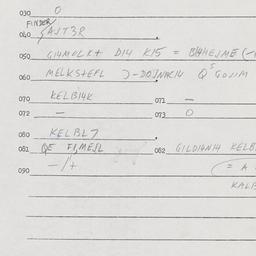 030 O
FINDER
040 SAJT3R
050 GI4MOLK+ DI4 K15 = BAHEJME (-
060 MELKS+EFL )-DOJNHC14 Q5 GOJIM
070 KELBI4K 071 —
072 — 073 O
080 KELBL7
081 QE FI,MEJL 082 GILDI4NI4 KELB
-/+ = A
090 KALB